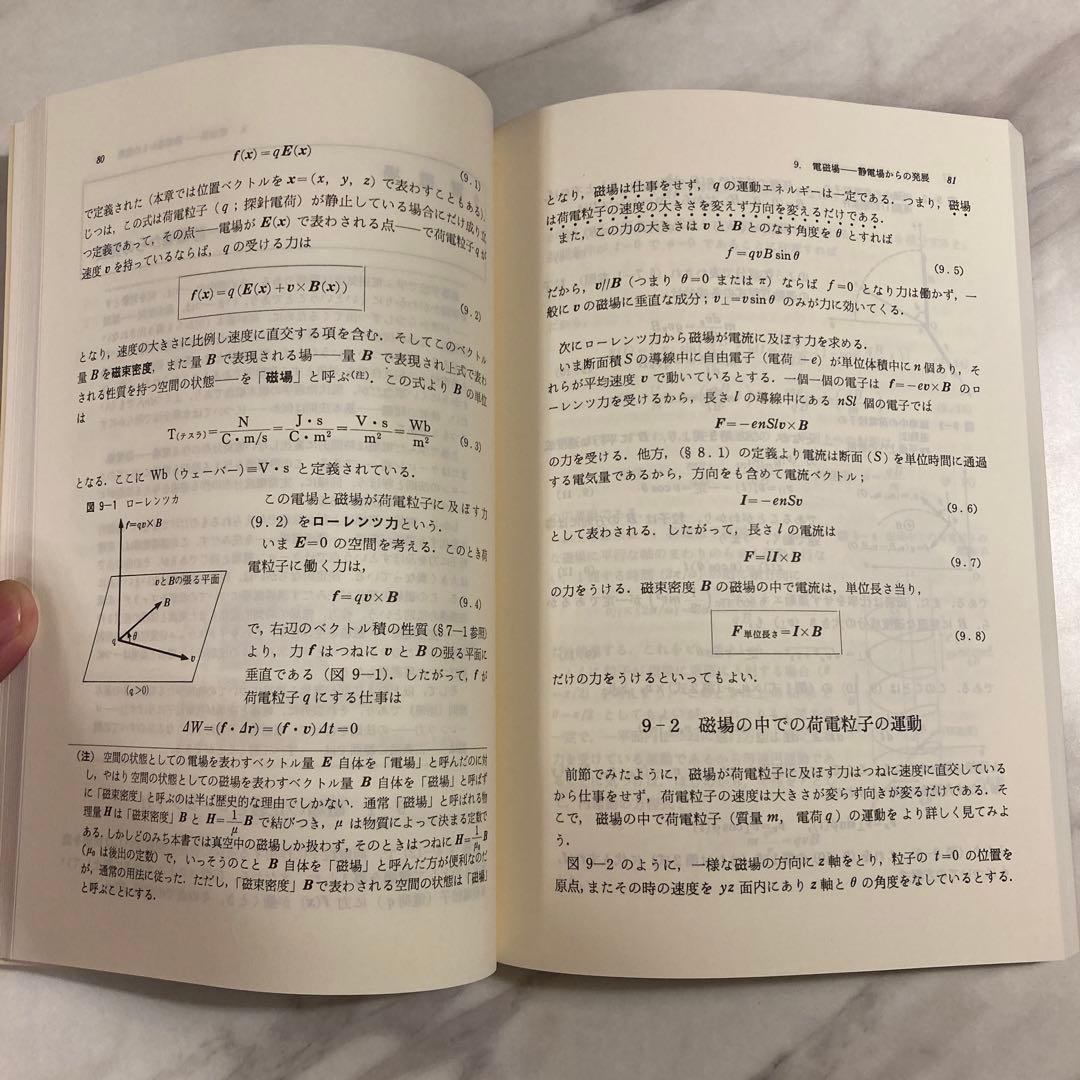 80
f(x)=qE(x)
(9.1)
で定義された（本章では位置ベクトルを x=(x, y, z) で表わすこともある）．
じつは，この式は荷電粒子（q；探針電荷）が静止している場合にだけ成り立
つ定義であって，その点――電場が E(x) で表わされる点――で荷電粒子 q が
速度 v を持っているならば，q の受ける力は
f(x)=q(E(x)+v×B(x))
(9.2)
となり，速度の大きさに比例し速度に直交する項を含む．そしてこのベクトル
量 B を磁束密度，また量 B で表現される場――量 B で表現され上式で表わ
される性質を持つ空間の状態――を「磁場」と呼ぶ(注)．この式より B の単位
は
T(テスラ)=N/(C・m/s)=J・s/(C・m²)=V・s/m²=Wb/m² (9.3)
となる．ここに Wb（ウェーバー）=V・s と定義されている．
図 9-1 ローレンツ力
f=qv×B
vとBの張る平面
B
q
θ
v
(q>0)
この電場と磁場が荷電粒子に及ぼす力
(9.2) をローレンツ力という．
いま E=0 の空間を考える．このとき荷
電粒子に働く力は，
f=qv×B (9.4)
で，右辺のベクトル積の性質（§7―1参照）
より，力 f はつねに v と B の張る平面に
垂直である（図 9―1）．したがって，f が
荷電粒子 q にする仕事は
ΔW=(f・Δr)=(f・v)Δt=0
（注） 空間の状態としての電場を表わすベクトル量 E 自体を「電場」と呼んだのに対
し，やはり空間の状態としての磁場を表わすベクトル量 B 自体を「磁場」と呼ばず
に「磁束密度」と呼ぶのは半ば歴史的な理由でしかない．通常「磁場」と呼ばれる物
理量 H は「磁束密度」B と H=1/μ B で結びつき，μ は物質によって決まる定数で
ある．しかしどのみち本書では真空中の磁場しか扱わず，そのときはつねに H=1/μ₀ B
（μ₀ は後出の定数）で，いっそうのこと B 自体を「磁場」と呼んだ方が便利なのだ
が，通常の用法に従った．ただし，「磁束密度」B で表わされる空間の状態は「磁場」
と呼ぶことにする．
9. 電磁場――静電場からの発展 81
となり，磁場は仕事をせず，q の運動エネルギーは一定である．つまり，磁場
は荷電粒子の速度の大きさを変えず方向を変えるだけである．
また，この力の大きさは v と B とのなす角度を θ とすれば
f=qvB sin θ
(9.5)
だから，v//B（つまり θ=0 または π）ならば f=0 となり力は働かず，一
般に v の磁場に垂直な成分；v⊥=v sin θ のみが力に効いてくる．
次にローレンツ力から磁場が電流に及ぼす力を求める．
いま断面積 S の導線中に自由電子（電荷 −e）が単位体積中に n 個あり，そ
れらが平均速度 v で動いているとする．一個一個の電子は f=−ev×B のロ
ーレンツ力を受けるから，長さ l の導線中にある nSl 個の電子では
F=−enSlv×B
の力を受ける．他方，（§8.1）の定義より電流は断面（S）を単位時間に通過
する電気量であるから，方向をも含めて電流ベクトル；
I=−enSv
(9.6)
として表わされる．したがって，長さ l の電流は
F=lI×B
(9.7)
の力をうける．磁束密度 B の磁場の中で電流は，単位長さ当り，
F単位長さ=I×B
(9.8)
だけの力をうけるといってもよい．
9-2 磁場の中での荷電粒子の運動
前節でみたように，磁場が荷電粒子に及ぼす力はつねに速度に直交している
から仕事をせず，荷電粒子の速度は大きさが変らず向きが変るだけである．そ
こで，磁場の中で荷電粒子（質量 m，電荷 q）の運動をより詳しく見てみよ
う．
図 9―2 のように，一様な磁場の方向に z 軸をとり，粒子の t=0 の位置を
原点，またその時の速度を yz 面内にあり z 軸と θ の角度をなしているとする．